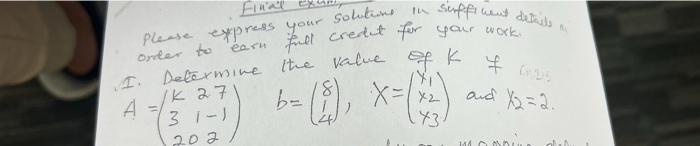 Final exam,
Please express your solutions in sufficient details in
order to earn full credit for your work.
I. Determine the value of K if
A = (K 2 7 b = (8 X = (x1 and x2 = 2.
3 1 -1) 1 x2
2 0 2 4) x3)